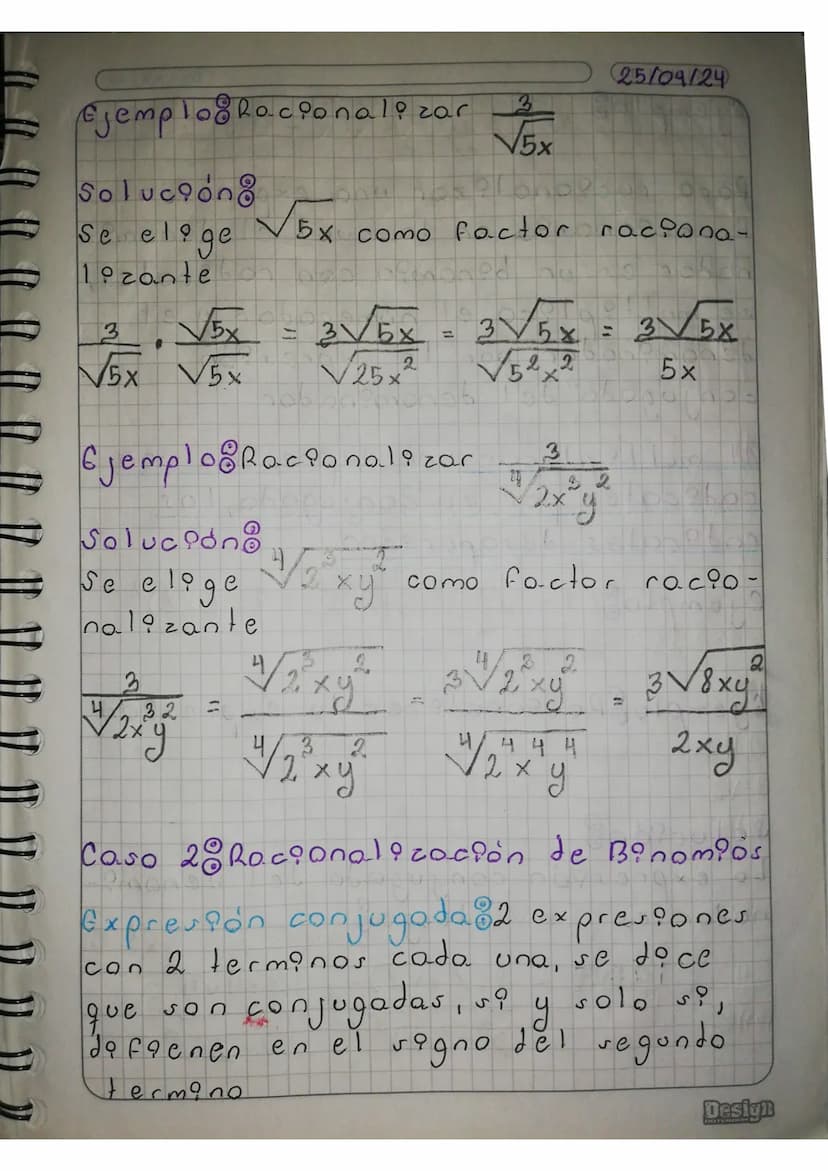 25/09/24
Ejemplo: Racionalizar 3/√5x
Solución:
Se elige √5x como factor raciona-
lizante
3/√5x · √5x/√5x = 3√5x/√25x² = 3√5x/√5²x² = 3√5x/5x
Ejemplo: Racionalizar 3/⁴√2x³y²
Solución:
Se elige ⁴√2³xy² como factor racio-
nalizante
3/⁴√2x³y² = ⁴√2³xy²/⁴√2³xy² = 3⁴√2³xy²/⁴√2⁴x⁴y⁴ = 3√8xy²/2xy
Caso 2: Racionalización de Binomiós
Expresión conjugada: 2 expresiones
con 2 terminos cada una, se dice
que son conjugadas, si y solo si,
difienen en el signo del segundo
termino
Design